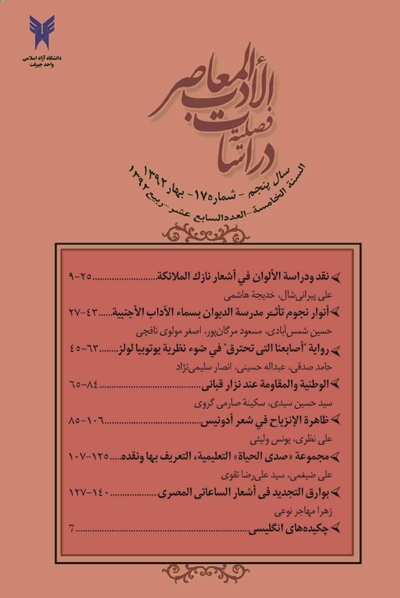 دانشگاه آزاد اسلامی
واحد جیرفت
فصلية
دراسات
الأدب المعاصر
سال پنجم - شماره ۱۷ - بهار ۱۳۹۲
السنة الخامسة - العدد السابع عشر - ربيع ۱۳۹۲
نقد ودراسة الألوان في أشعار نازك الملائكة..........................۹-۲۵
علی پیرانی‌شال، خدیجة هاشمی
أنوار نجوم تأثـر مدرسة الديوان بسماء الآداب الأجنبية.....۲۷-۴۳
حسین شمس‌آبادی، مسعود مرگان‌پور، اصغر مولوی نافچی
رواية "أصابعنا التی تحترق" في ضوء نظرية يوتوبيا لولز.........۴۵-۶۳
حامد صدقی، عبداله حسینی، انصار سلیمی‌نژاد
الوطنية والمقاومة عند نزار قبانی...............................۶۵-۸۴
سید حسین سیدی، سکینة صارمی گروی
ظاهرة الإنزياح في شعر أدونيس............................۸۵-۱۰۶
علی نظری، یونس ولیئی
مجموعة «صدى الحياة» التعليمية، التعريف بها ونقده.....۱۰۷-۱۲۵
علی ضیغمی، سید علی‌رضا تقوی
بوارق التجديد فى أشعار الساعاتى المصرى...................۱۲۷-۱۴۰
زهرا مهاجر نوعی
چکیده‌های انگلیسی...........................................................7